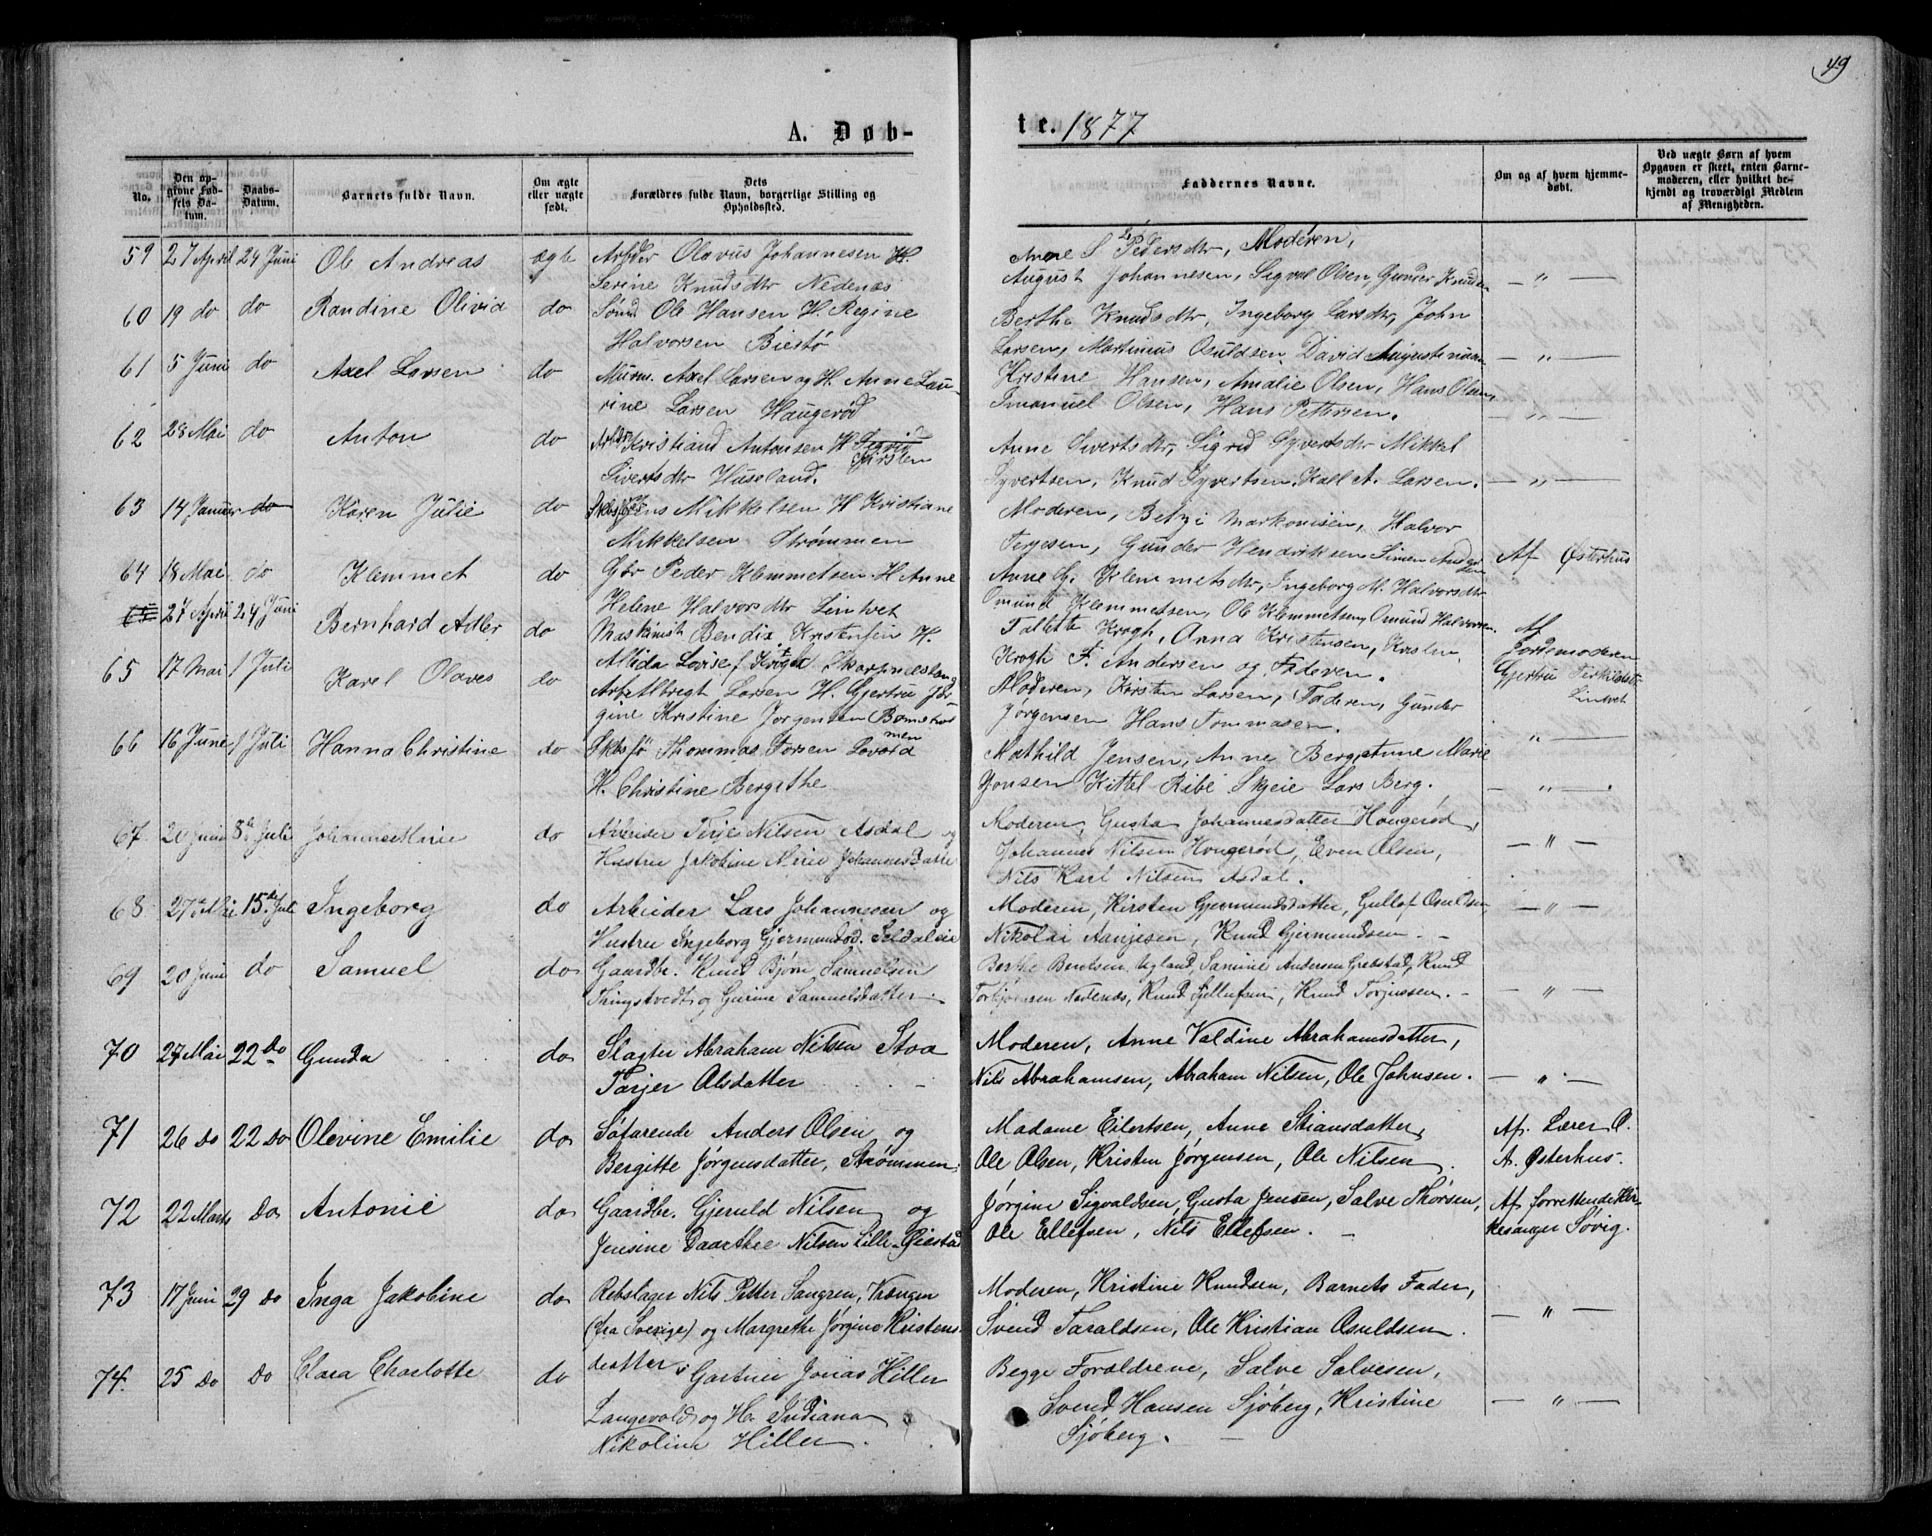 49
A. Døb-
te. 1877
No.
Den op-
givne Fød-
sels Da-
tum.
Daabs-
Datum.
Barnets fulde Navn.
Om ægte
eller uægte
født.
Dets
Forældres fulde Navn, borgerlige Stilling og
Opholdssted.
Faddernes Navne.
Om og af hvem hjemme-
døbt.
Ved uægte Børn af hvem
Opgaven er skeet, enten Barne-
moderen, eller hvilket be-
kjendt og troværdigt Medlem
af Menigheden.
59 27 April 24 Juni Ole Andreas ægte Arbder Olavus Johannesen H.
Serine Knudsdtr Nedenæs
Anne S Pedersdtr, Moderen,
August Johannesen, Sigval Olsen, Gunder Knudsen — " —
60 19 do do Randine Olivia do Sømd Ole Hansen H. Regine
Halvorsen Biestø
Berthe Knudsdtr, Ingeborg Larsdtr, John
Larsen, Martinius Osuldsen, David — " —
61 5 Juni do Axel Larsen do Murm. Axel Larsen og H. Anne Lau-
rine Larsen Haugerød
Kristine Hansen, Amalie Olsen, Hans Olsen,
Emanuel Olsen, Hans Pettersen. — " —
62 28 Mai do Anton do Arbdr Kristiand Antonsen H.
Kirsten
Sivertsdtr Huseland.
Anne Sivertsdtr, Sigrid Syvertsdtr Mikkel
Syvertsen, Knud Syvertsen, Kall A. Larsen. — " —
63 14 Januar do Karen Julie do Skbsf Jens Mikkelsen H Kristiane
Mikkelsen Strømmen
Moderen, Betzi Markussen, Halvor
Terjesen, Gunder Hendriksen Simen Andersen
64 18 Mai do Klemmet do Gbr Peder Klemmetsen H Anne
Helene Halvorsdtr Lintvet
Anne G. Klemmetsdtr, Ingeborg M. Halvorsdtr
Omund Klemmetsen, Ole Klemmetsen, Omund Halvorsen.
Af Østerhus
27 April 24 Juni Bernhard Adler do Maskinist Bendix Kristensen H.
Alida Lovise f. Krogh Skarpnesland
Tallette Krogh, Anna Kristensen, Kristen
Krogh F. Andersen og Faderen.
Af
Jordemoderen
Gjertru Terkildstr
Lintvet
65 17 Mai 1 Juli Karel Olaves do Arb. Albregt Larsen H. Gjertru Jør-
gine Kristine Jørgensen
Moderen, Kirsten Larsen, Faderen, Gunder
Jørgensen Hans Tommasen.
66 16 June 1 Juli Hanna Christine do Skbsfø Thommas Torsen
H. Christine Bergithe
Mathild Jensen, Anne Berg, Anne Marie
Jonsen Kittel Ribe Skjeie Lars Berg. — " —
67. 20 Juni 8de Juli Johanne Marie do Arbeider Terje Nilsen Asdal og
Hustru Jakobine Mirie Johannesdatter
Moderen, Gusta Johannesdatter Hougerød,
Johannes Nilsen Hougerød, Even Olsen,
Nils Karl Nilsen Asdal. — " —
68 27de Mai 15de Juli Ingeborg do Arbeider Lars Johannesen og
Hustru Ingeborg Gjermundsd. Seldaleie
Moderen, Kirsten Gjermundsdatter, Gullof Osuldsen
Nikolai Aanjesen, Knud Gjermundsen. — " —
69 20 Juni do Samuel do Gaardbr. Knud Bjørn Samuelsen
Tingstvedt og Gurine Samuelsdatter.
Berthe Bentsen Ugland, Samine Andersen Grebstad, Knud
Torbjørnsen Nedenæs, Knud Gjellufsen, Knud Torjussen. — " —
70 27 Mai 22 do Gunda do Slagter Abraham Nilsen Stoa
Tarjer Olsdatter
Moderen, Anne Valdine Abrahamsdatter,
Nils Abrahamsen, Abraham Nilsen, Ole Johnsen. — " —
71 26 do 22 do Olevine Emilie do Søfarende Anders Olsen og
Bergitte Jørgensdatter, Strømmen.
Madame Eilertsen, Anne Stiansdatter,
Ole Olsen, Kristen Jørgensen, Ole Nilsen.
Af. Lærer O.
A. Østerhus.
72 22 Marts do Antonie do Gaardbr. Gjeruld Nilsen og
Jensine Daarthee Nilsen Lille-Øiestad
Jørgine Sigvaldsen, Gusta Jensen, Salve Thorsen,
Ole Ellefsen, Nils Ellefsen.
Af. forrettende Kir-
kesanger Søvig.
73 17 Juni 29 do Inga Jakobine do Rebslager Nils Petter Sangren, Vrængen
(fra Sverige) og Margrethe Jørgine Kristens-
datter.
Moderen, Kristine Knudsen, Barnets Fader,
Svend Taraldsen, Ole Kristian Osuldsen. — " —
74. 25 do do Clara Charlotte do Gartner Jonas Hiller
Langevold og H. Indiana
Nikoline Hiller.
Begge Forældrene, Salve Salvesen,
Svend Hansen Sjøberg, Kristine
Sjøberg. — " —